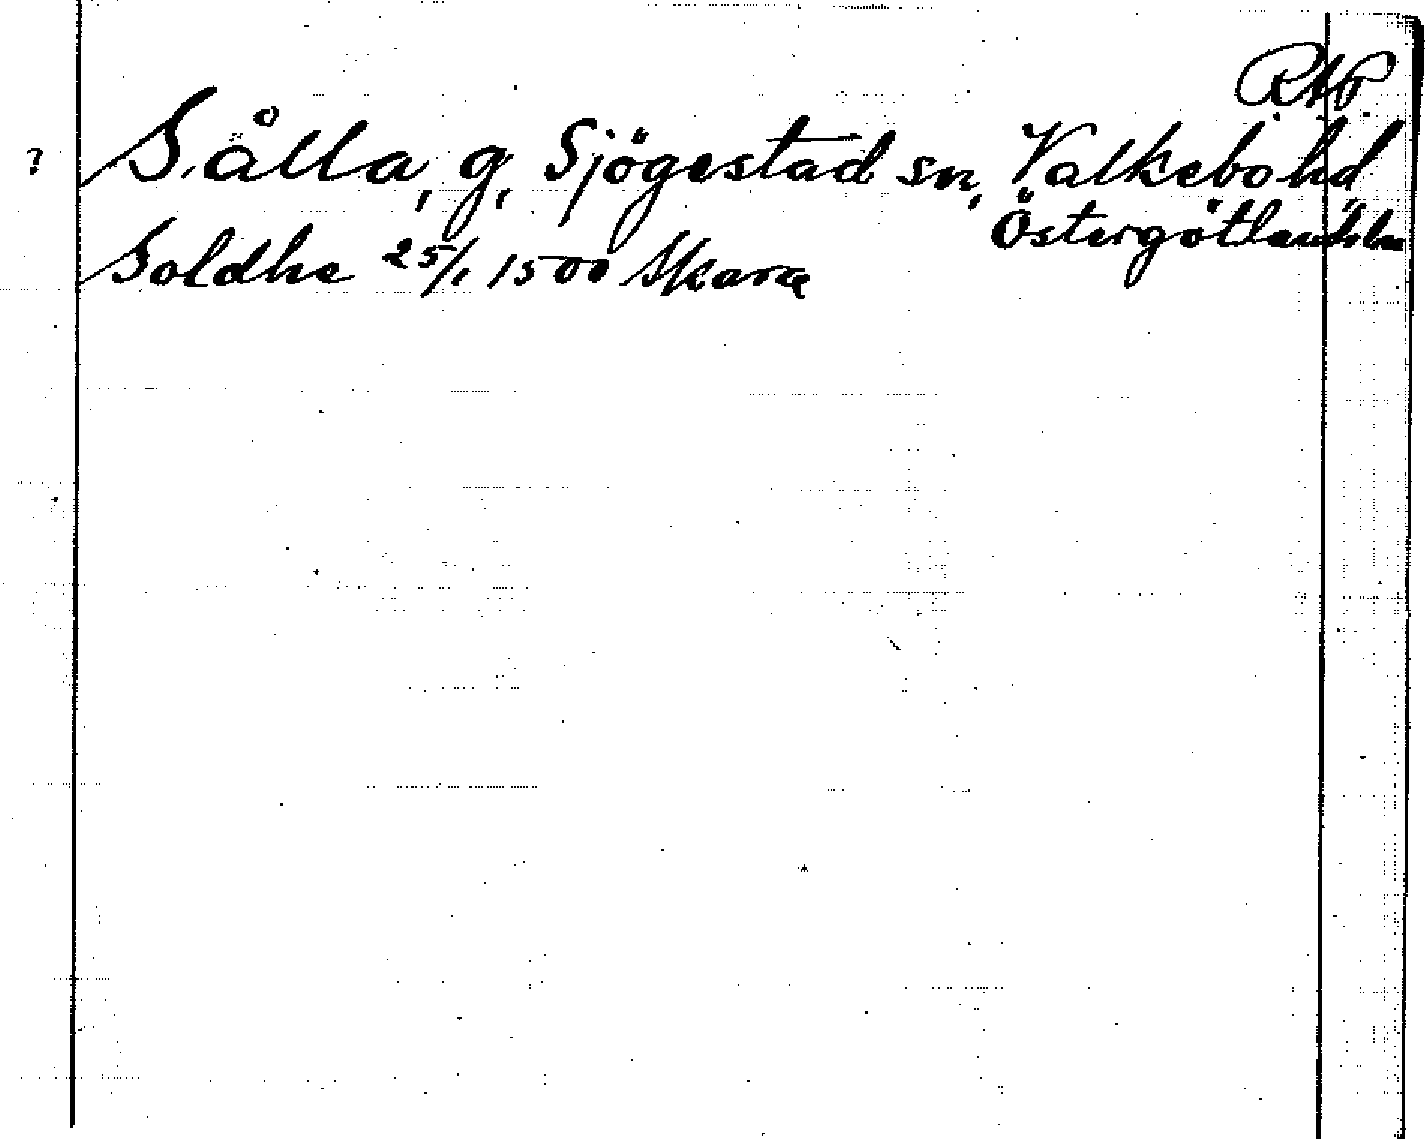 RAP
? Sålla, g, Sjögestad sn, Valkebo hd
Östergötlands län
Soldhe 25/1 1500 Skara